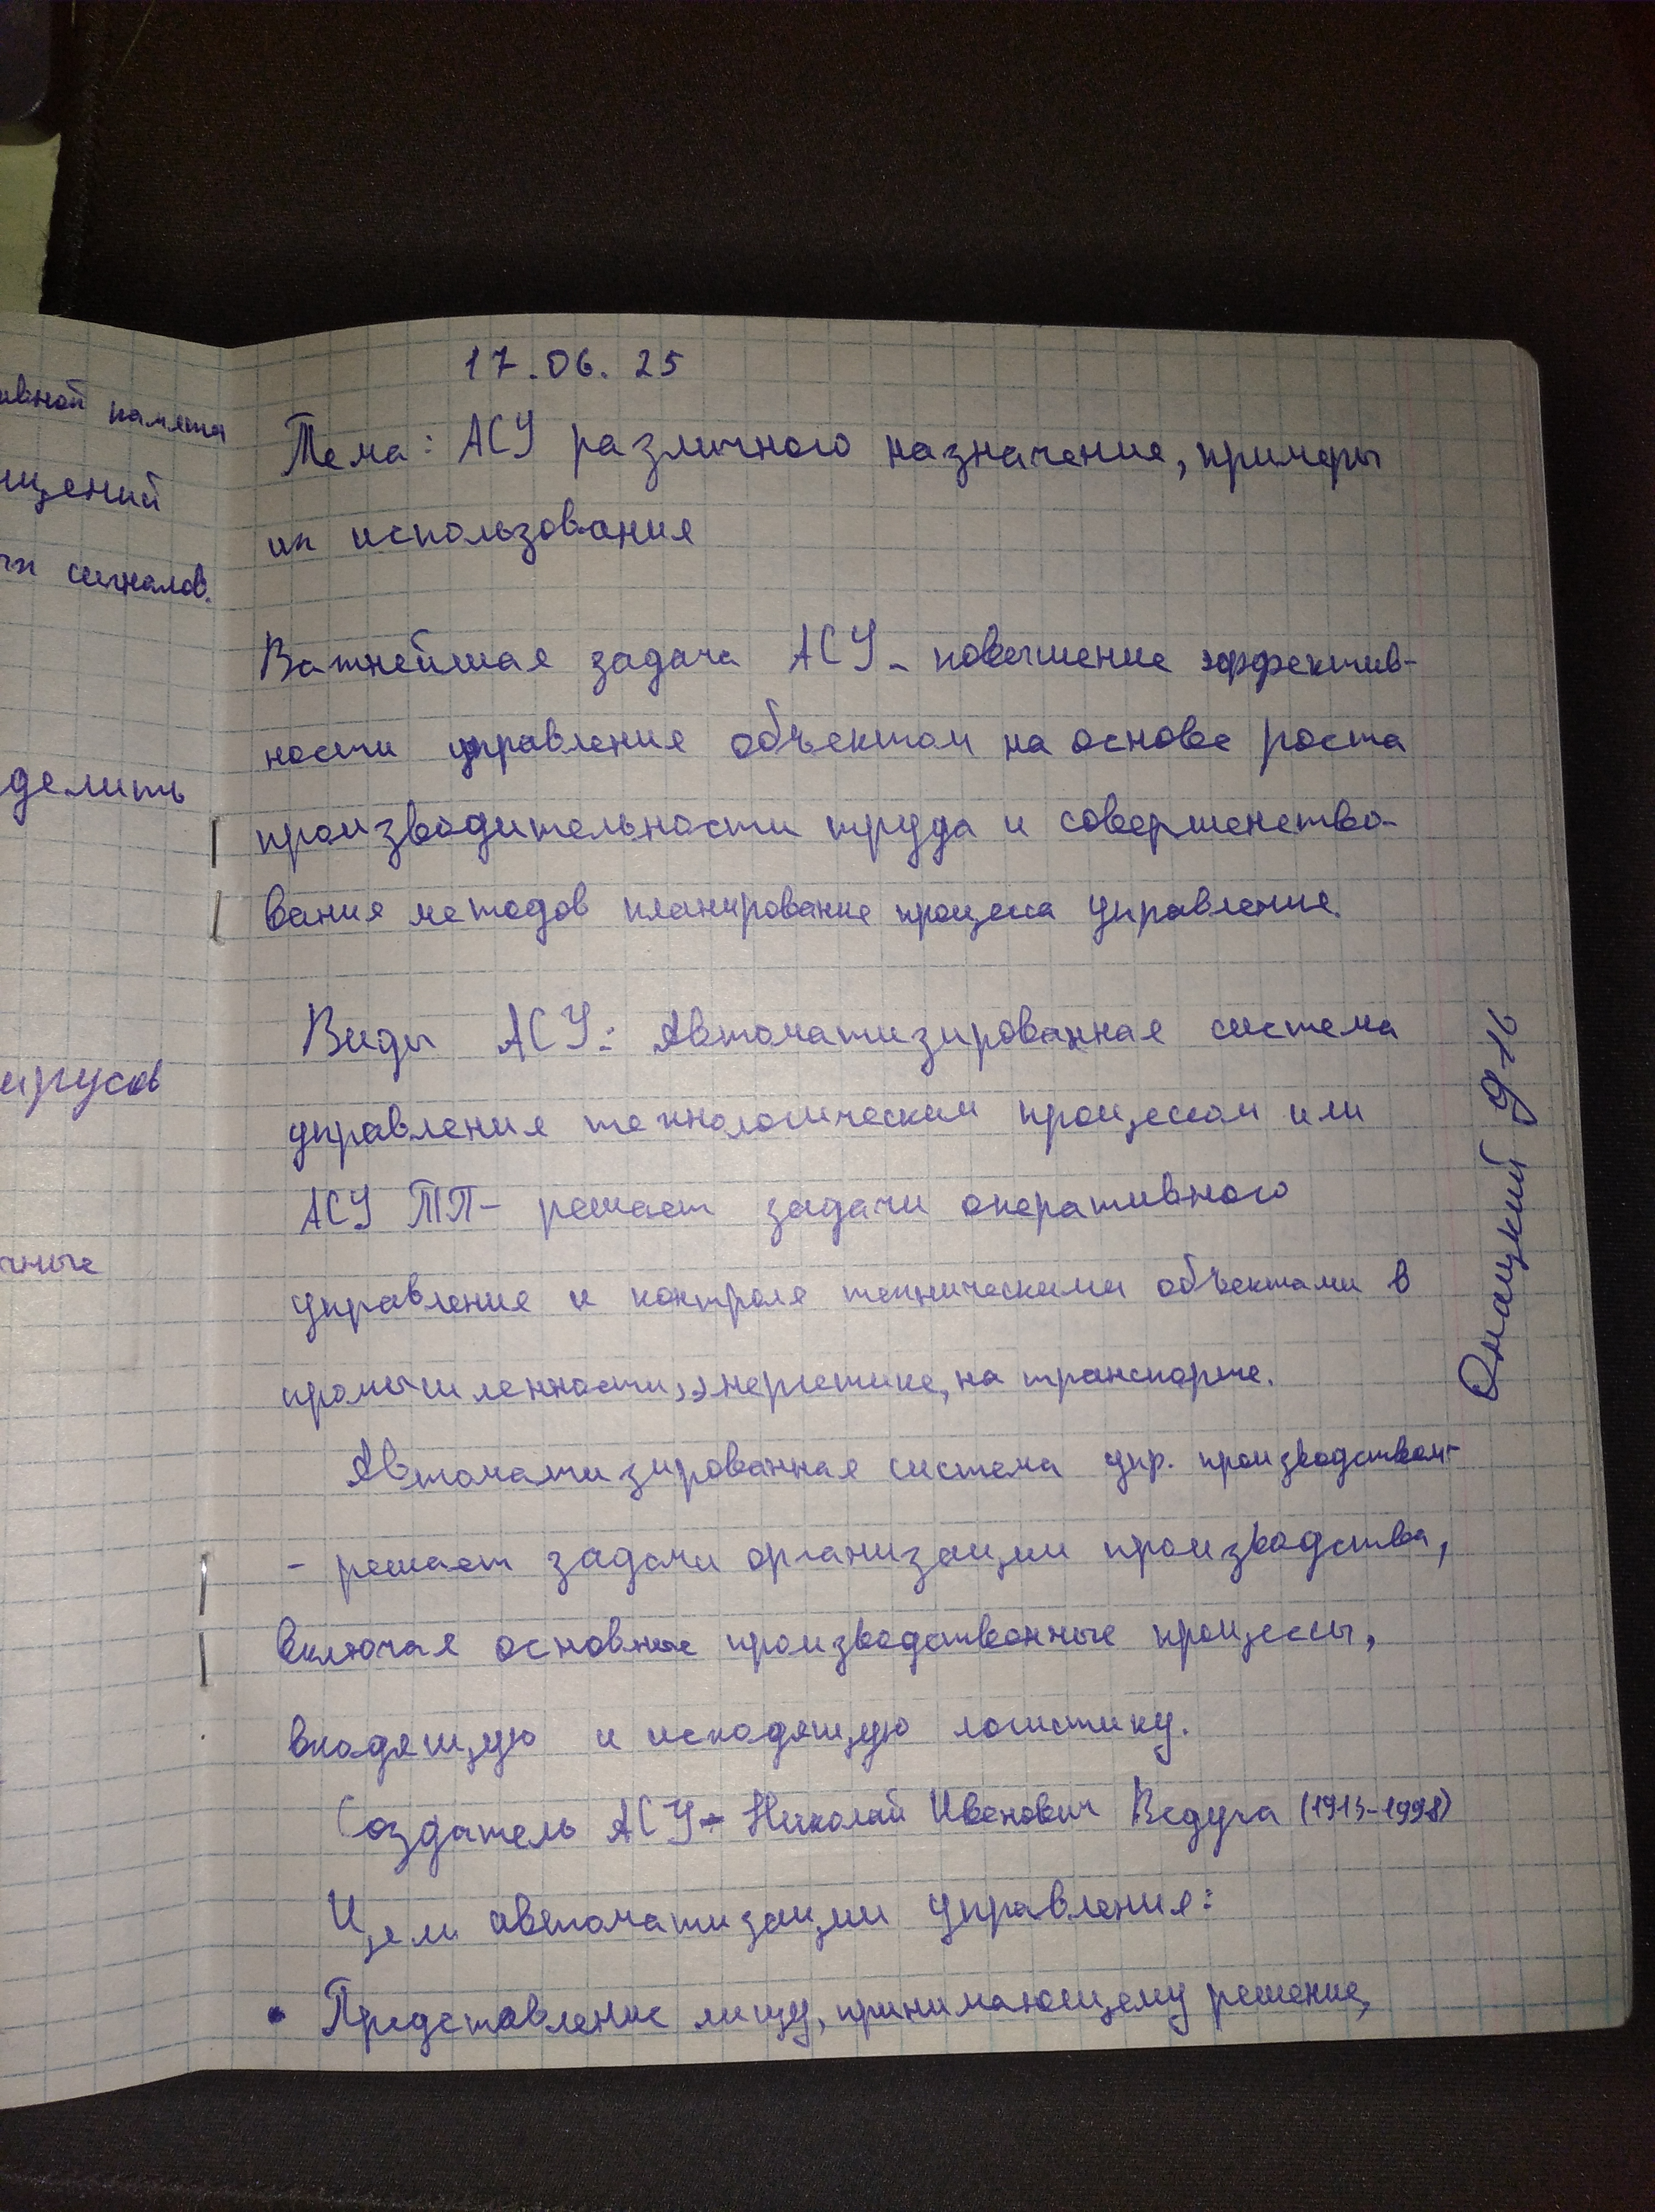 ивной памяти
щений
сигналов.
делить
ирусов
чные
17.06.25
Тема: АСУ различного назначение, примеры
их использования
Важнейшая задача АСУ - повышение эффектив-
ности управления объектом на основе роста
производительности труда и совершенство-
вания методов планирование процесса управление.
Виды АСУ: Автоматизированная система
управления технологическим процессом или
АСУ ТП - решает задачи оперативного
управление и контроля техническими объектами в
промышленности, энергетике, на транспорте.
Автоматизированная система упр. производством-
- решает задачи организации производства,
включая основные производственные процессы,
входящую и исходящую логистику.
Создатель АСУ - Николай Иванович Ведута (1913-1998)
Цели автоматизации управления:
• Представление лицу, принимающему решение,
Онацкий 9-16